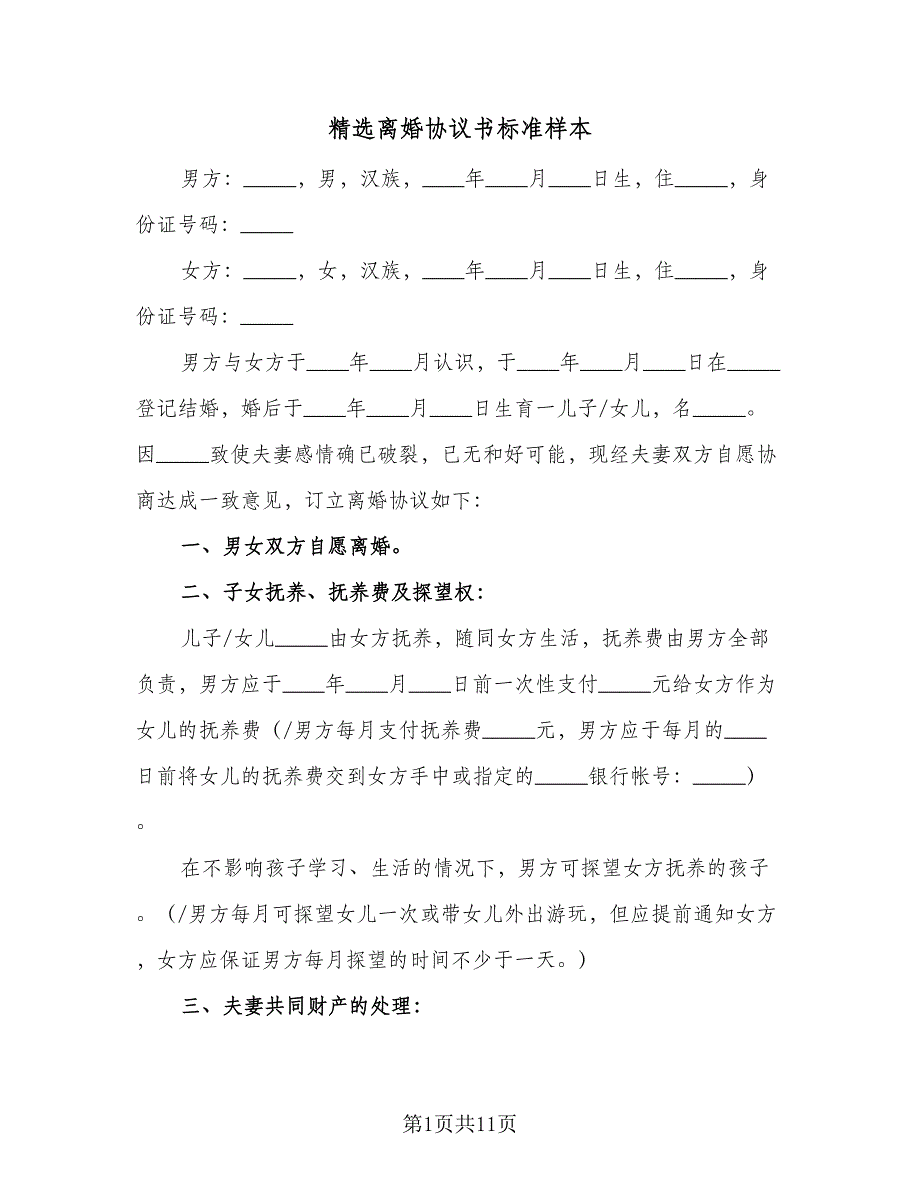 精选离婚协议书标准样本
男方：_____，男，汉族，____年____月____日生，住_____，身
份证号码：_____
女方：_____，女，汉族，____年____月____日生，住_____，身
份证号码：_____
男方与女方于____年____月认识，于____年____月____日在_____
登记结婚，婚后于____年____月____日生育一儿子/女儿，名_____。
因_____致使夫妻感情确已破裂，已无和好可能，现经夫妻双方自愿协
商达成一致意见，订立离婚协议如下：
一、男女双方自愿离婚。
二、子女抚养、抚养费及探望权：
儿子/女儿_____由女方抚养，随同女方生活，抚养费由男方全部
负责，男方应于____年____月____日前一次性支付_____元给女方作为
女儿的抚养费（/男方每月支付抚养费_____元，男方应于每月的____
日前将女儿的抚养费交到女方手中或指定的_____银行帐号：_____）
。
在不影响孩子学习、生活的情况下，男方可探望女方抚养的孩子
。（/男方每月可探望女儿一次或带女儿外出游玩，但应提前通知女方
，女方应保证男方每月探望的时间不少于一天。）
三、夫妻共同财产的处理：
第1页共11页